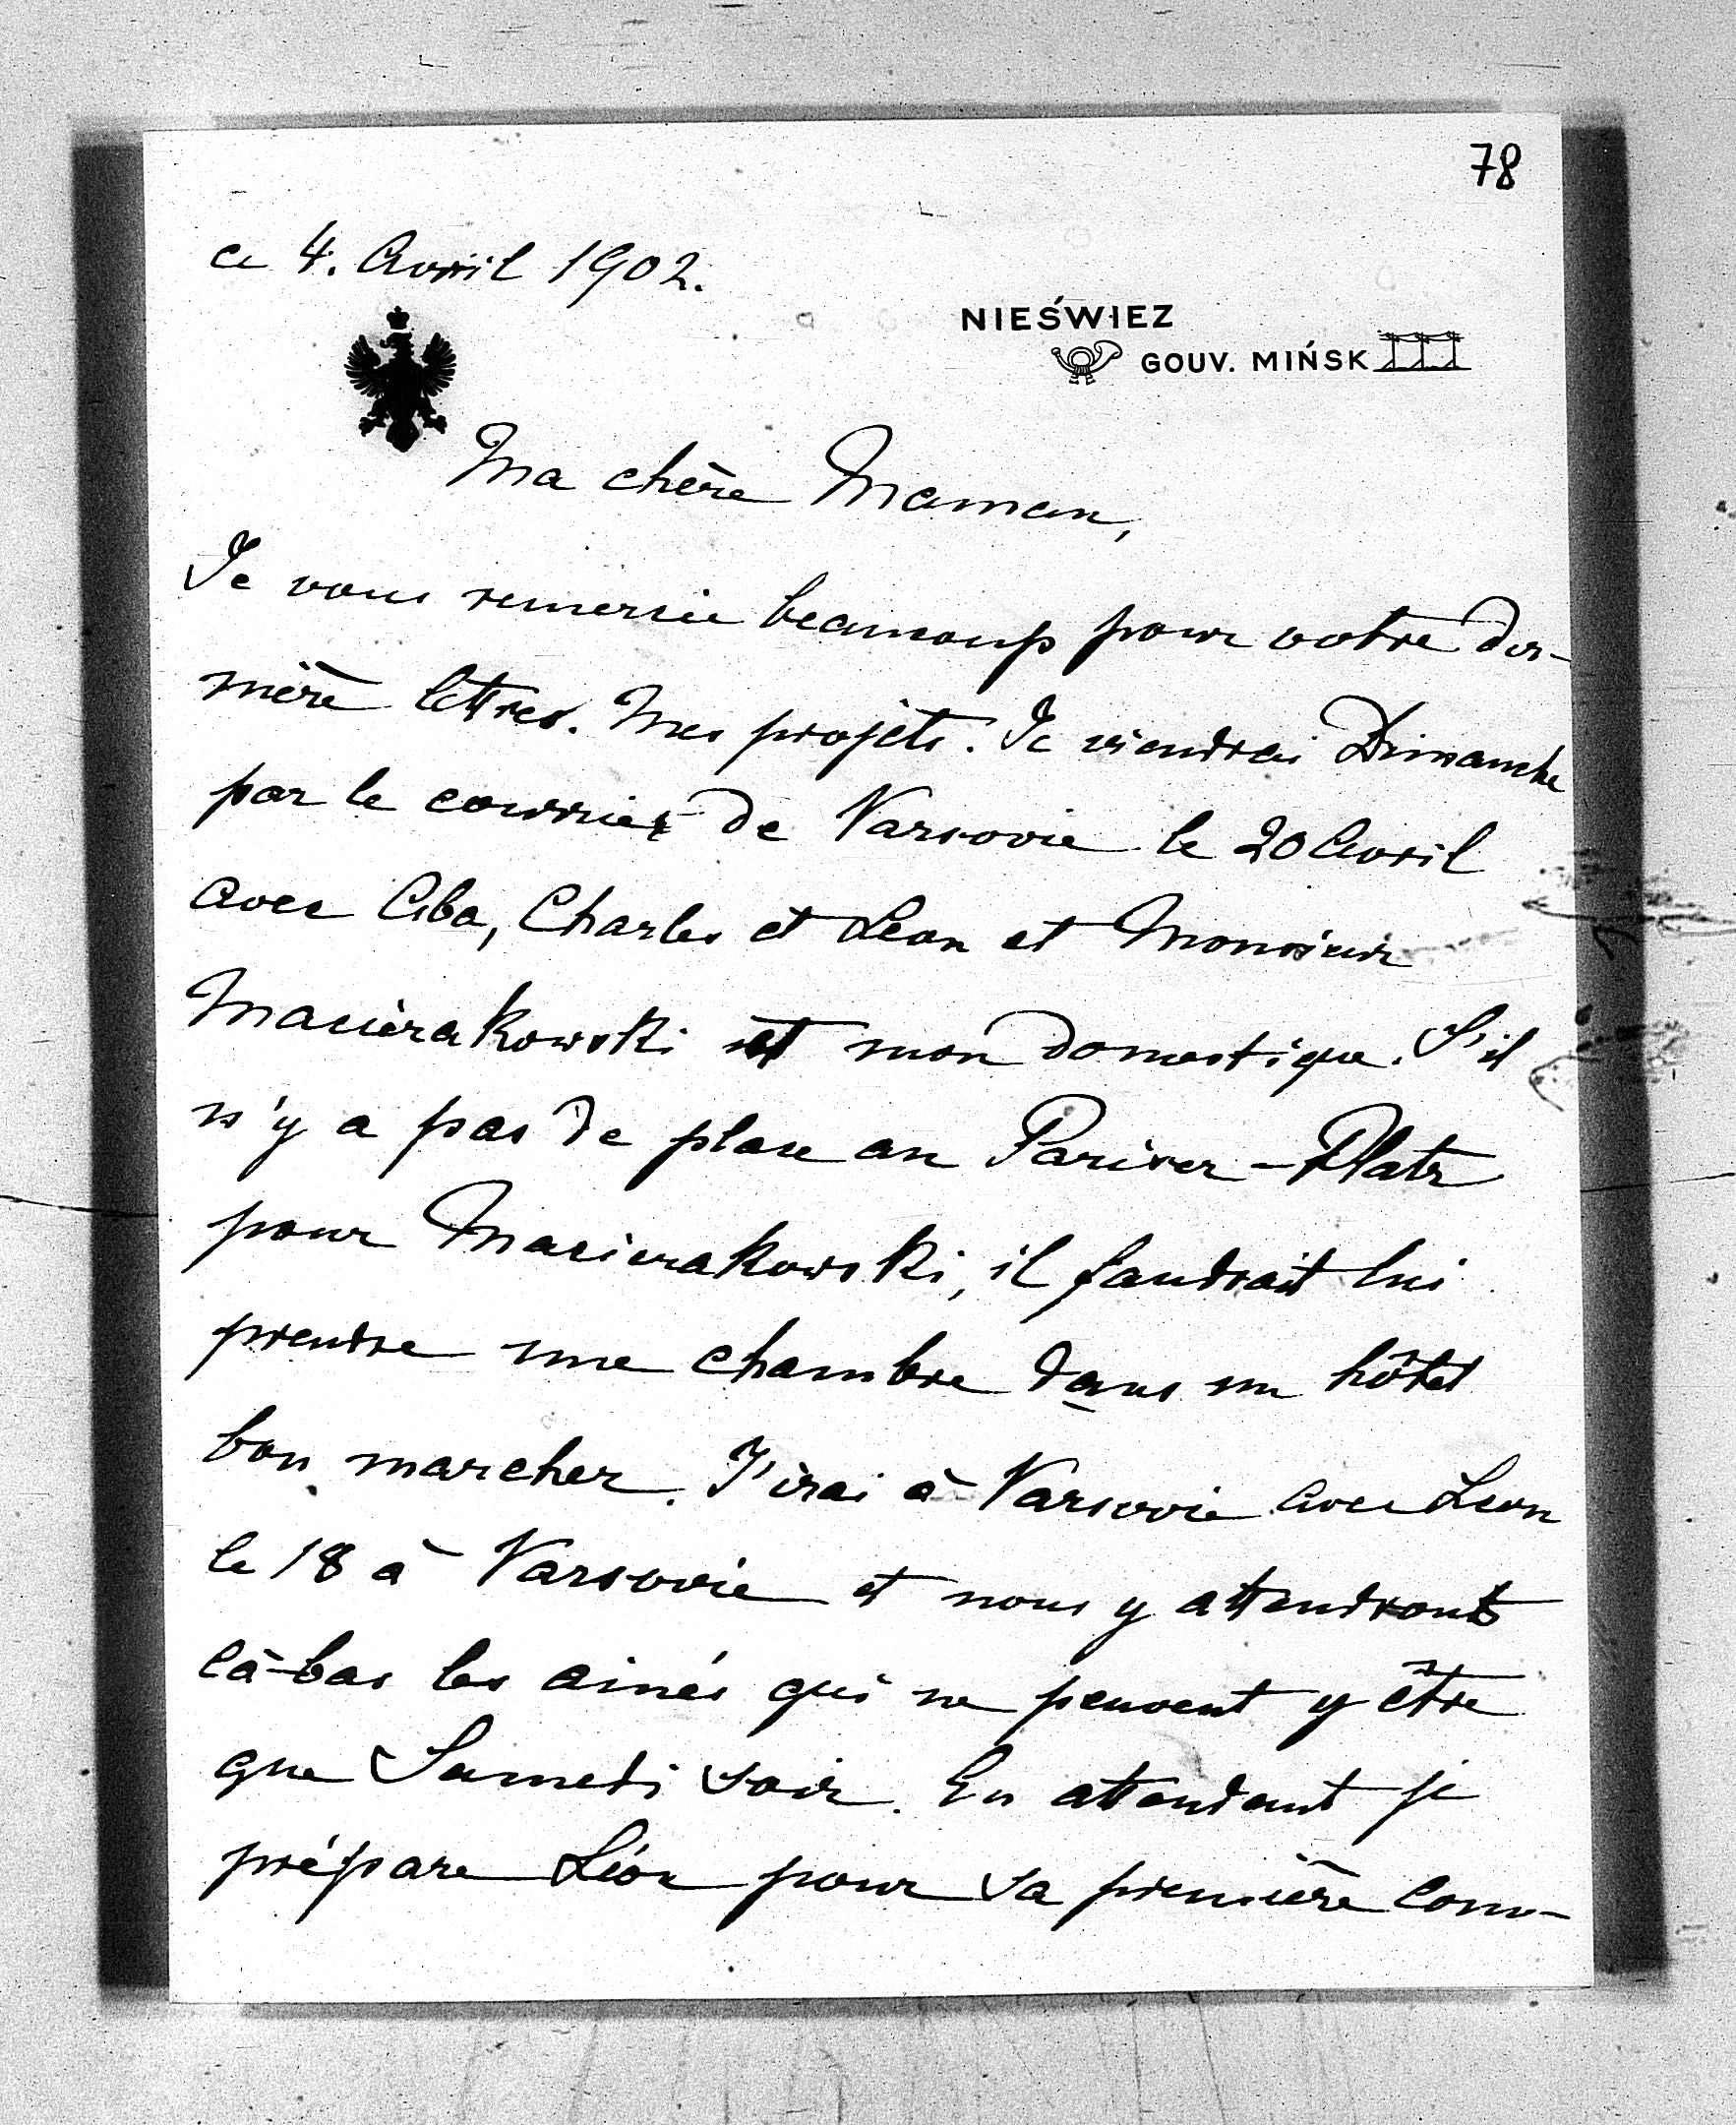 78
ce 4. Avril 1902.
NIEŚWIEZ
GOUV. MIŃSK
Ma chère Maman,
Je vous remercie beaucoup pour votre der-
nière lettres. Mes projets. Je viendrai Dimanche
par le courrier de Varsovie le 20 Avril
avec Aba, Charles et Leon et Monsieur
Macierakowski et mon domestique. S'il
n'y a pas de place au Pariser-Platz
pour Macierakowski, il faudrait lui
prendre une chambre dans un hôtel
bon marcher. J'irai à Varsovie avec Leon
le 18 à Varsovie et nous y attendrons
là-bas les ainés qui ne peuvent y être
que Samedi soir. En attendant je
prépare Léon pour sa première com-